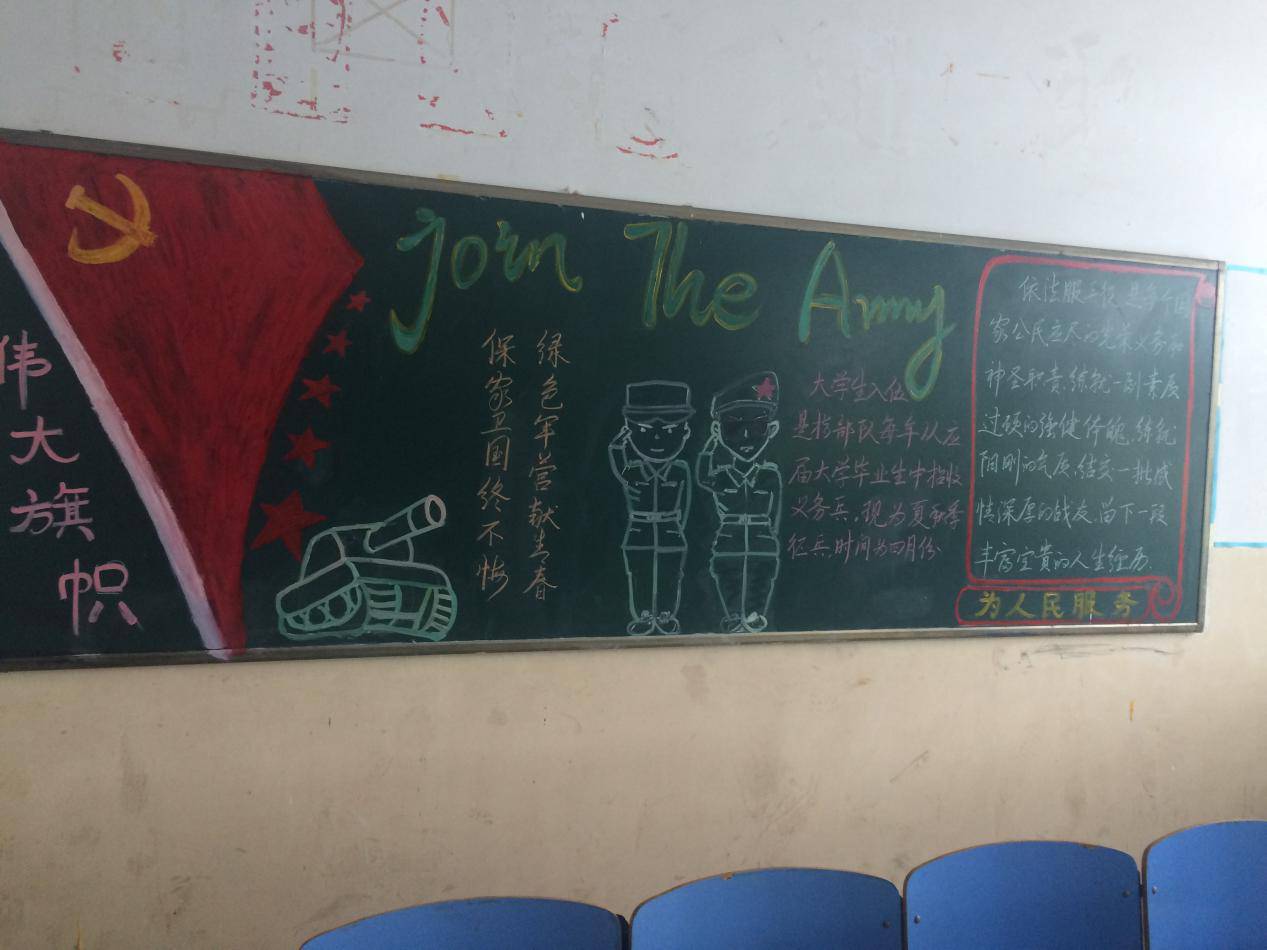 伟大旗帜
Join The Army
绿色军营献青春
保家卫国终不悔
大学生入伍
是指部队每年从应
届大学毕业生中招收
义务兵,现为夏秋季
征兵,时间为四月份
依法服兵役,是每个国
家公民应尽的光荣义务和
神圣职责,练就一副素质
过硬的强健体魄,练就
阳刚的气质,结交一批感
情深厚的战友,留下一段
丰富宝贵的人生经历.
为人民服务